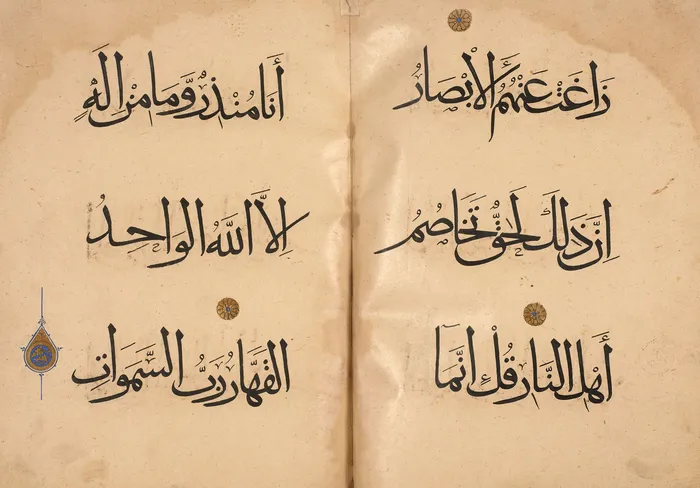 زَاغَتْ عَنْهُمُ الأَبْصَارُ
اِنَّ ذَلِكَ لَحَقٌّ تَخَاصُمُ
أَهْلِ النَّارِ قُلْ اِنَّمَا
أَنَا مُنْذِرٌ وَّمَا مِنْ اِلَهٍ
اِلاَّ اللَّهُ الوَاحِدُ
القَهَّارُ رَبُّ السَّمَوَاتِ